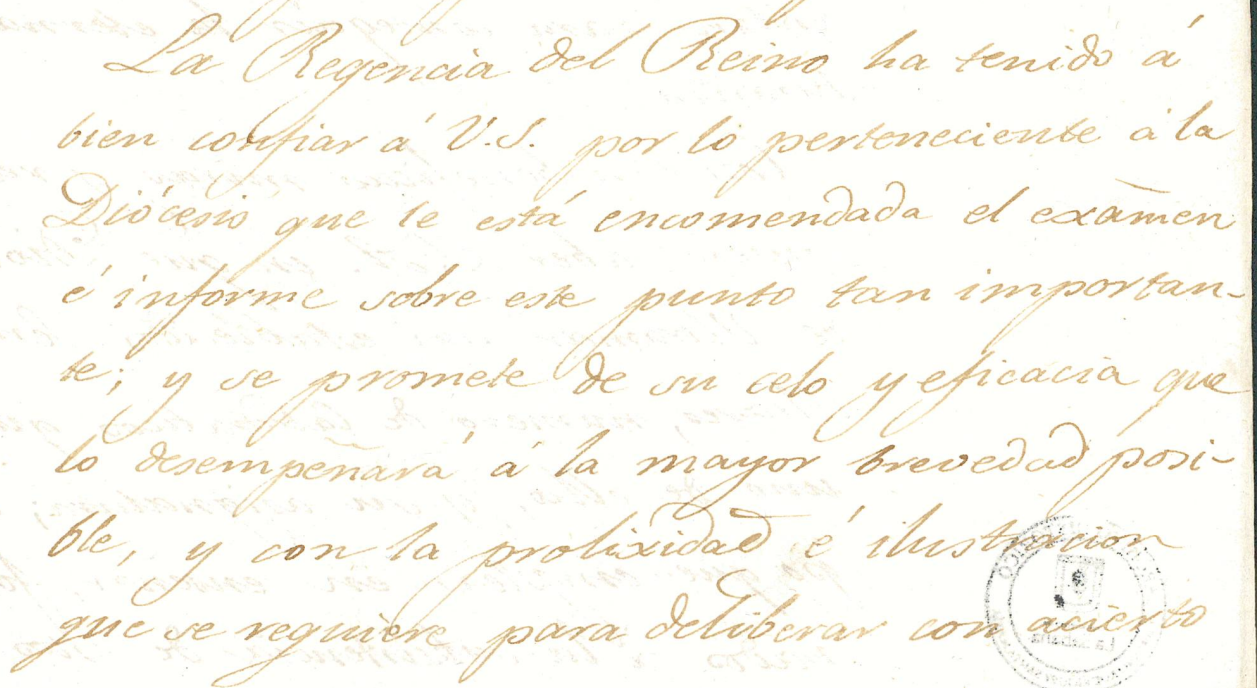 La Regencia del Reino ha tenido á
bien confiar á V.S. por lo perteneciente á la
Diócesis que le está encomendada el exâmen
é informe sobre este punto tan importan-
te; y se promete de su celo y eficacia que
lo desempeñará á la mayor brevedad posi-
ble, y con la prolixidad é ilustracion
que se requiere para deliberar con acierto